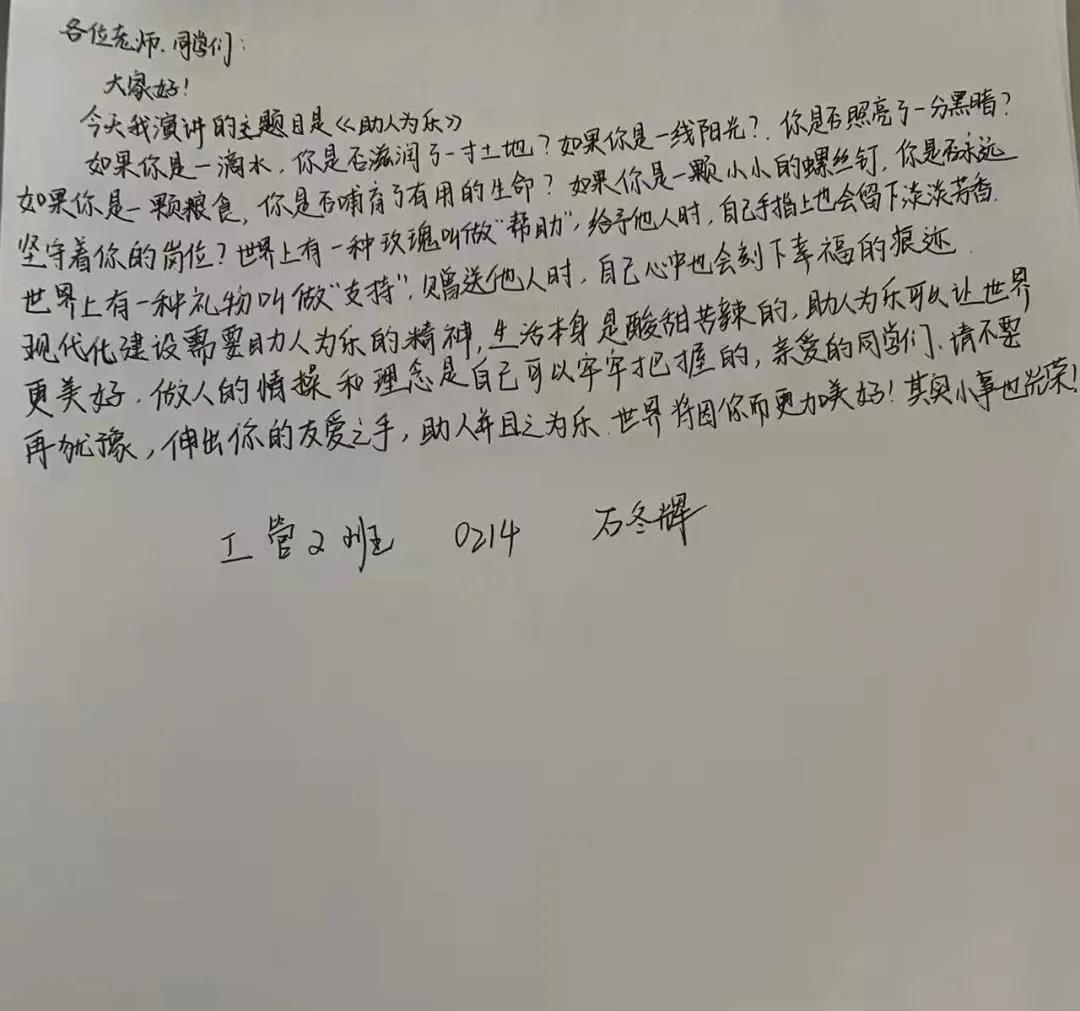 各位老师.同学们:
大家好!
今天我演讲的主题目是《助人为乐》
如果你是一滴水,你是否滋润了一寸土地?如果你是一线阳光?.你是否照亮了一分黑暗?
如果你是一颗粮食,你是否哺育了有用的生命?如果你是一颗小小的螺丝钉,你是否永远
坚守着你的岗位?世界上有一种玫瑰叫做“帮助”,给予他人时,自己手指上也会留下淡淡芳香.
世界上有一种礼物叫做“支持”,赠送他人时,自己心中也会刻下幸福的痕迹.
现代化建设需要助人为乐的精神,生活本身是酸甜苦辣的,助人为乐可以让世界
更美好.做人的情操和理念是自己可以牢牢把握的,亲爱的同学们.请不要
再犹豫,伸出你的友爱之手,助人并且之为乐.世界将因你而更加美好!其实小事也光荣!
工管2班 0214 石冬辉